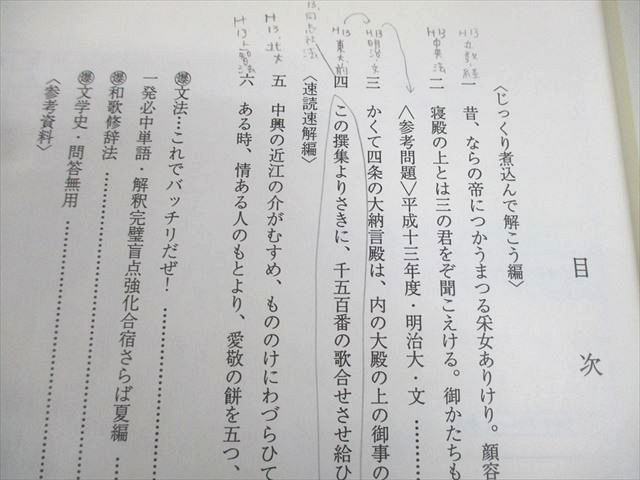 目次
〈じっくり煮込んで解こう編〉
H13立教・経
一 昔、ならの帝につかうまつる采女ありけり。顔容
H13中央・法
二 寝殿の上とは三の君をぞ聞こえける。御かたちも
〈参考問題〉平成十三年度・明治大・文 ……
H13明治・文
三 かくて四条の大納言殿は、内の大殿の上の御事の
H13東大・前
四 この撰集よりさきに、千五百番の歌合せさせ給ひ
H13.同志社・法
〈速読速解編〉
H13.北大
五 中興の近江の介がむすめ、もののけにわづらひて
H13上智・法
六 ある時、情ある人のもとより、愛敬の餅を五つ、
㊙文法…これでバッチリだぜ!……………
一発必中単語・解釈完璧盲点強化合宿さらば夏編
和歌修辞法……………
文学史・問答無用……………
〈参考資料〉